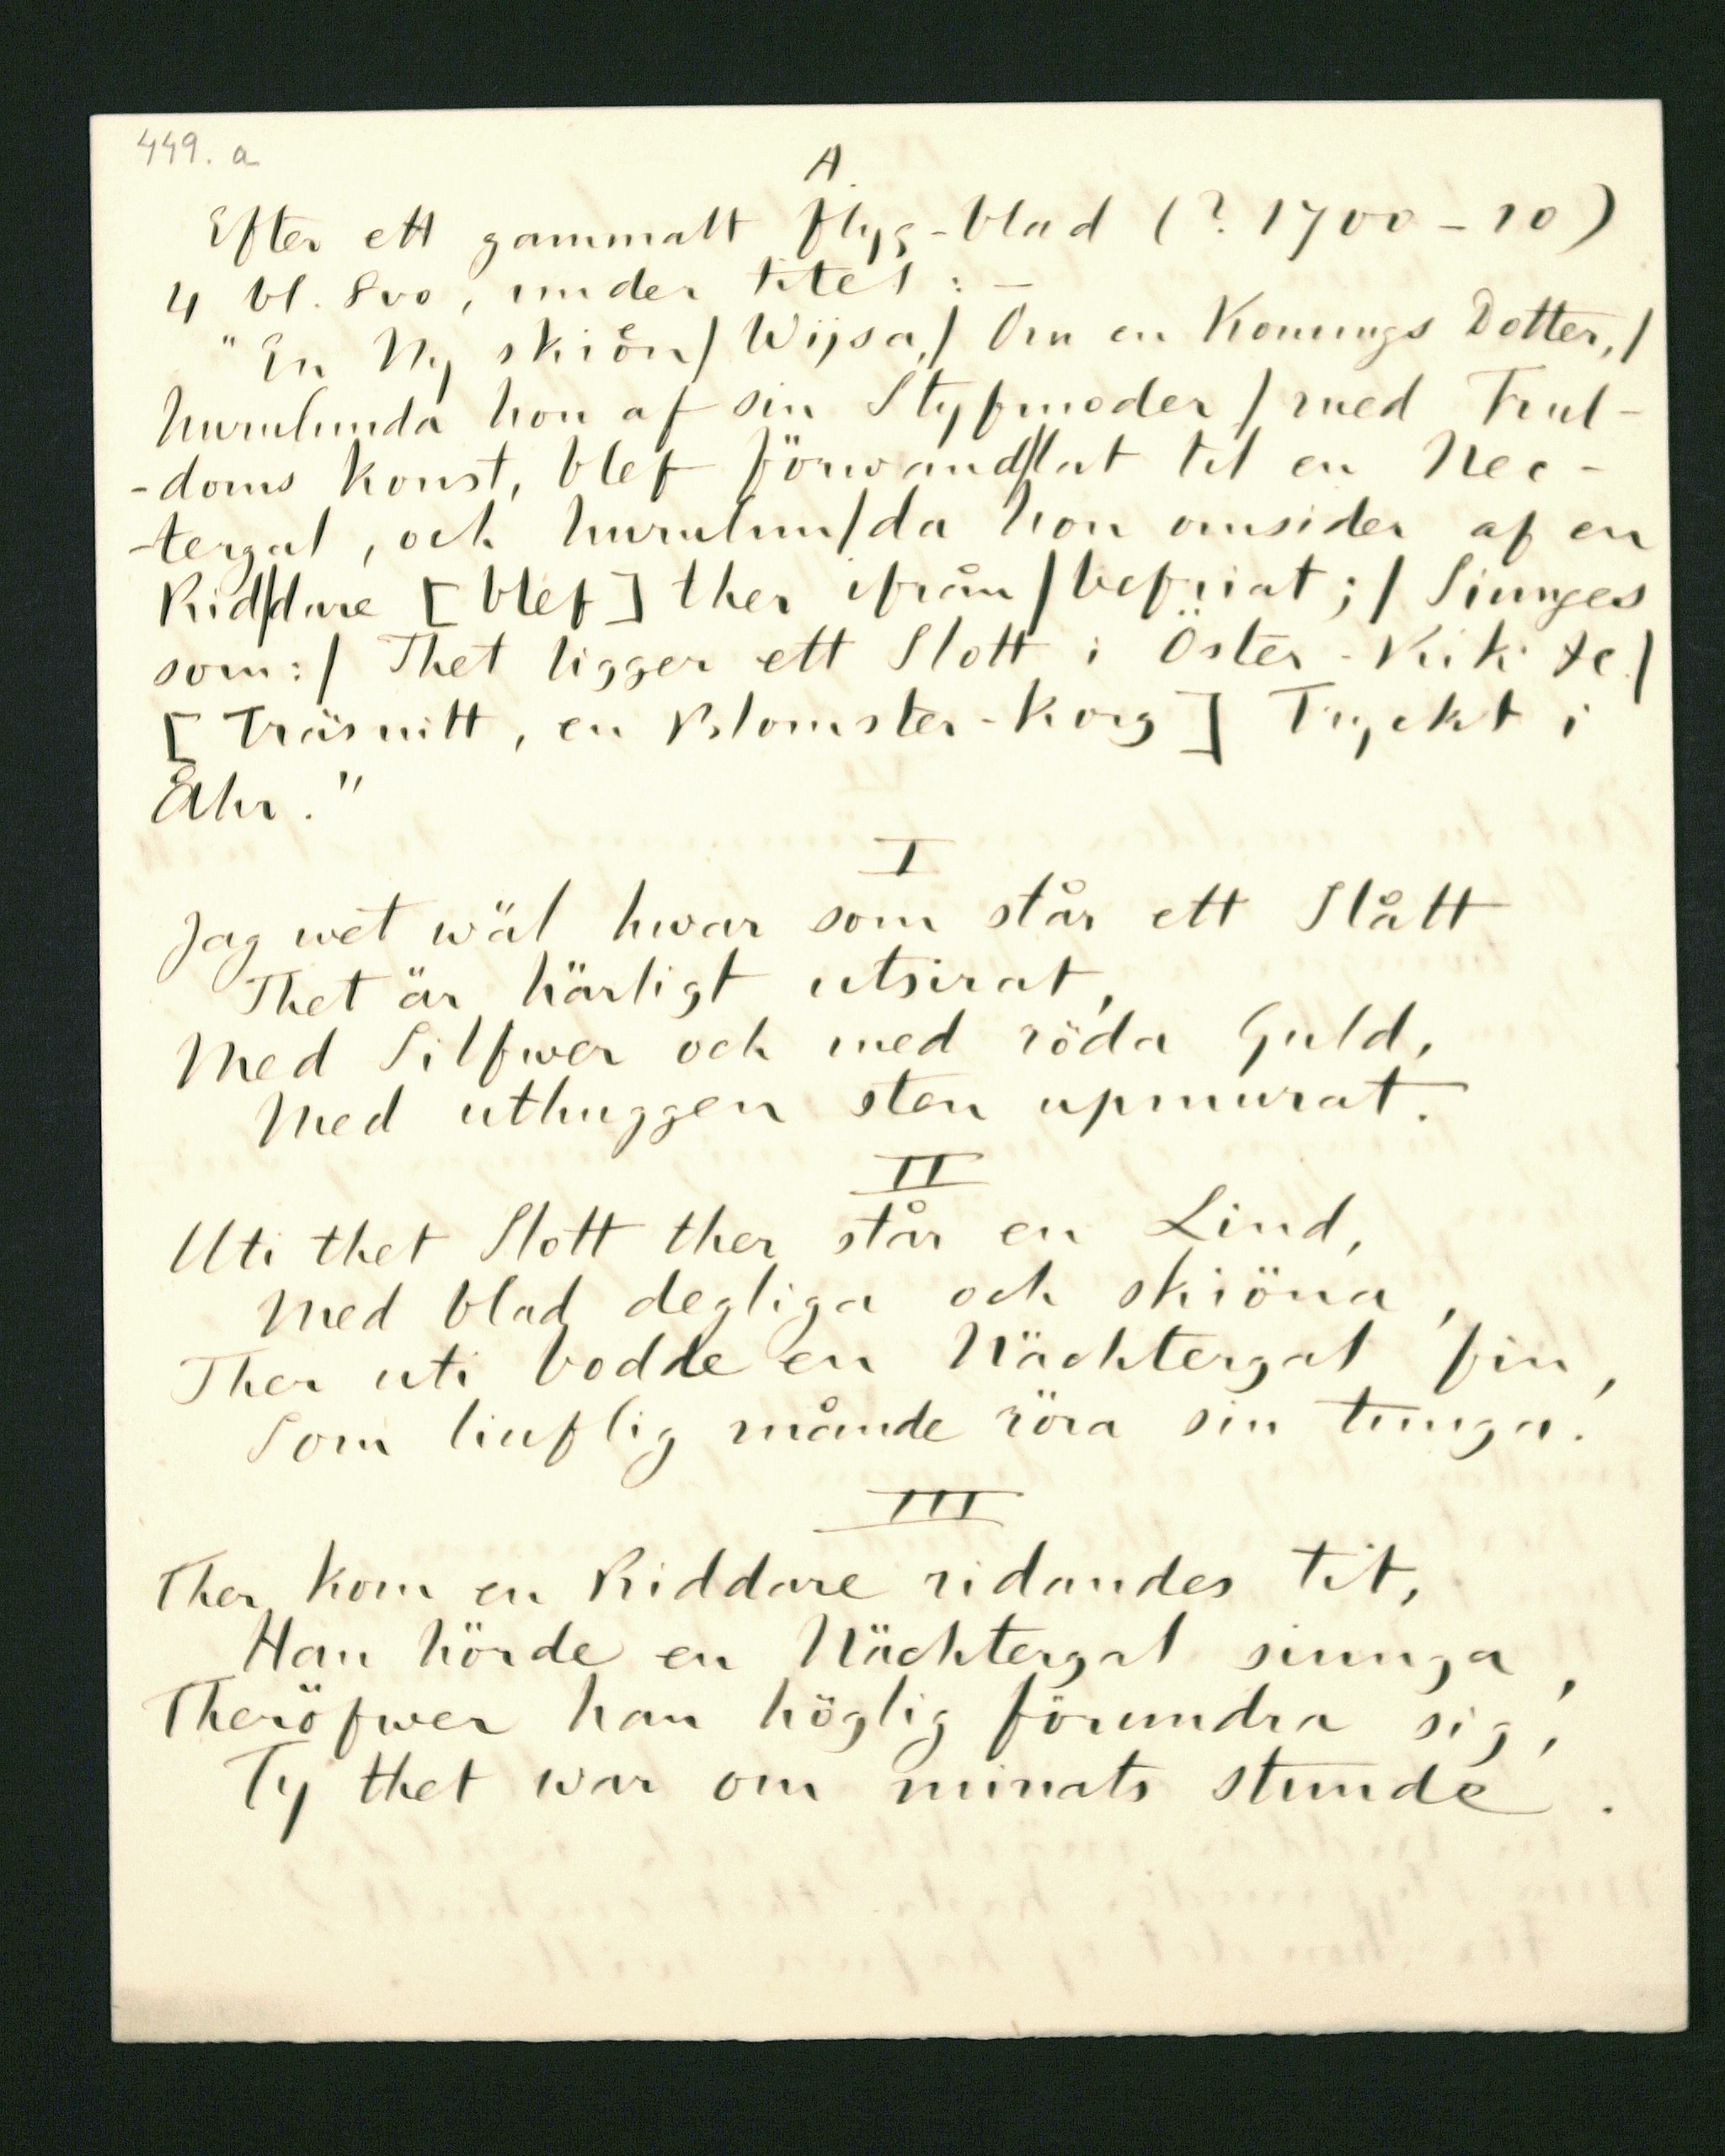 449. a
A.
Efter ett gammalt flyg-blad (? 1700 - 10)
4 bl. 8vo, under titel: -
"En Ny skiön/ Wijsa,/ Om en Konungs Dotter,/
hurulunda hon af sin Styfmoder / med Trul-
-doms Konst, blef förwand/lat til en Nec-
-tergal, och hurulun/da hon omsider af en
Rid/dare [blef] ther ifrån / befriat; / Siunges
som: / Thet ligger ett Slott i Öster-Rik &c./
[Träsnitt, en Blomster-Korg] Tryckt i
Åhr."
I
Jag wet wäl hwar som står ett Slått
Thet är härligt utsirat,
Med Silfwer och med röda Guld,
Med uthuggen sten upmurat.
II
Uti thet Slott ther står en Lind,
Med blad degliga och skiöna,
Ther uti bodde en Nächtergal fin,
Som liuflig månde röra sin tunga.
III
Ther kom en Riddare ridandes tit,
Han hörde en Nächtergal siunga,
Theröfwer han höglig förundra sig,
Ty thet war om minats stunde.